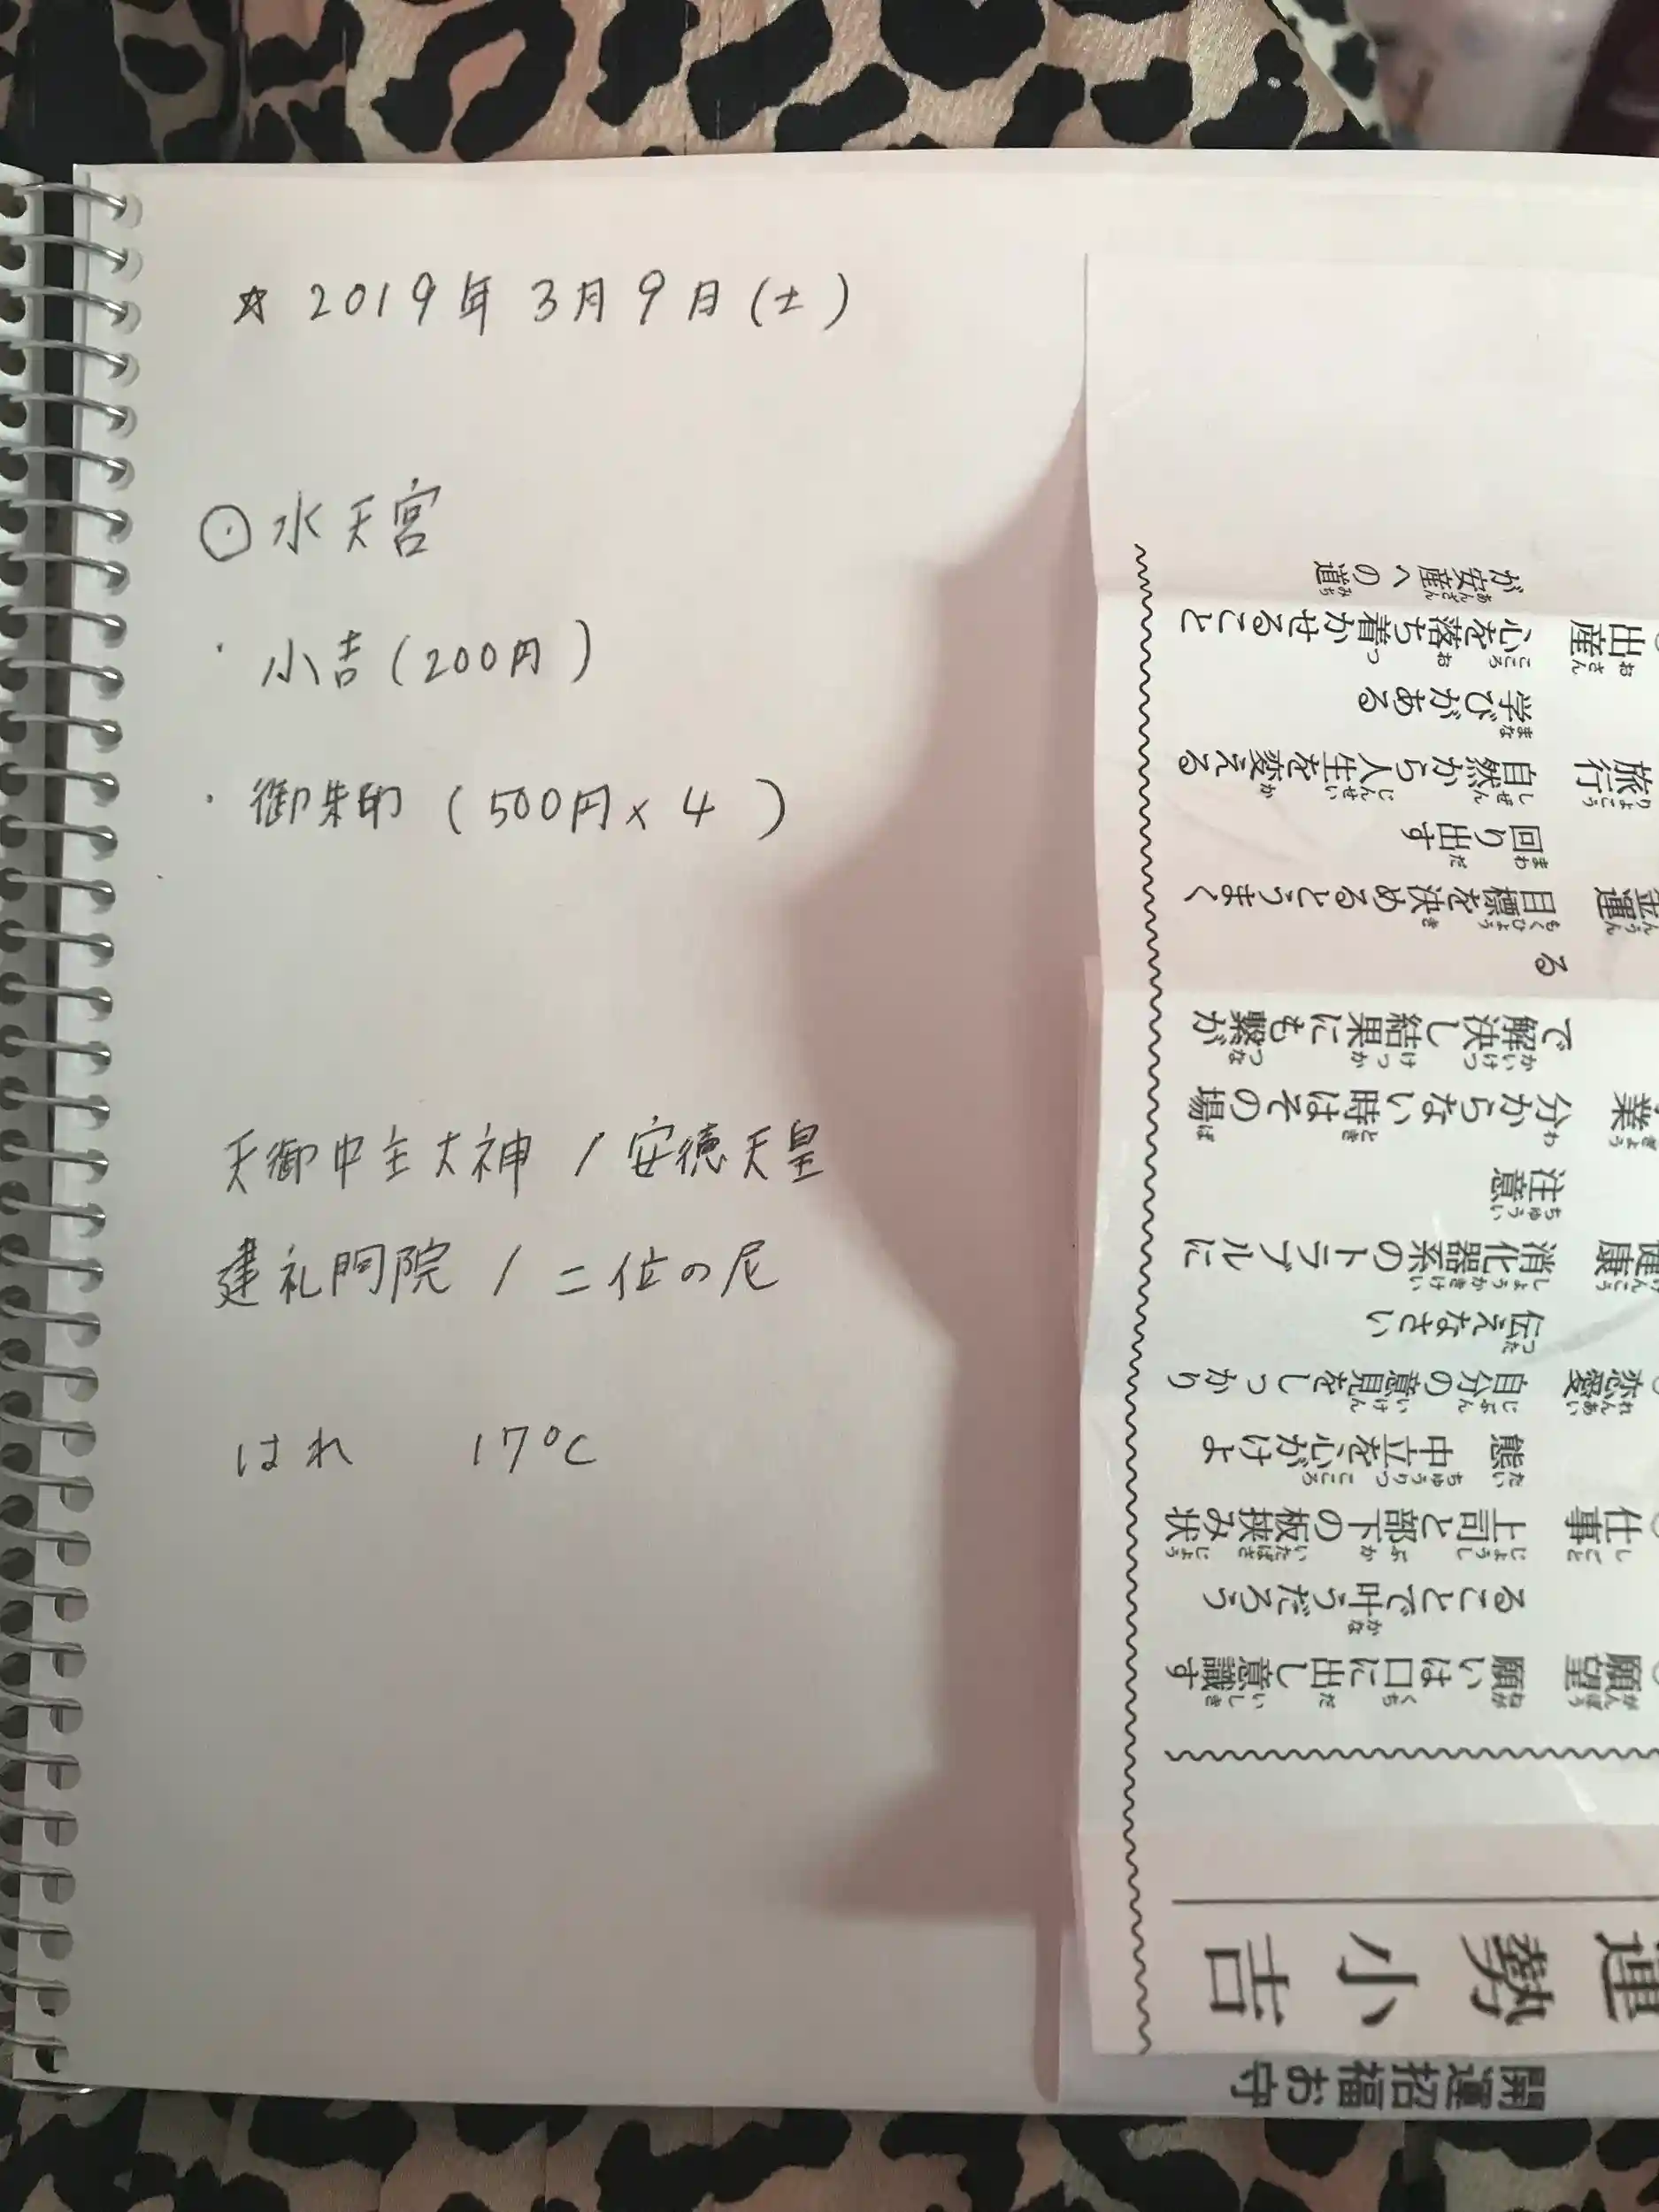 ☆ 2019年3月9日(土)
⊙ 水天宮
・小吉(200円)
・御朱印 (500円×4)
天御中主大神 / 安徳天皇
建礼門院 / 二位の尼
はれ 17℃
開運招福お守
運勢 小吉
願望 願いは口に出し意識す
ることで叶うだろう
仕事 上司と部下の板挟み状
態 中立を心がけよ
恋愛 自分の意見をしっかり
伝えなさい
健康 消化器系のトラブルに
注意
業 分からない時はその場
で解決し結果にも繋が
る
金運 目標を決めるとうまく
回り出す
旅行 自然から人生を変える
学びがある
出産 心を落ち着かせること
が安産への道